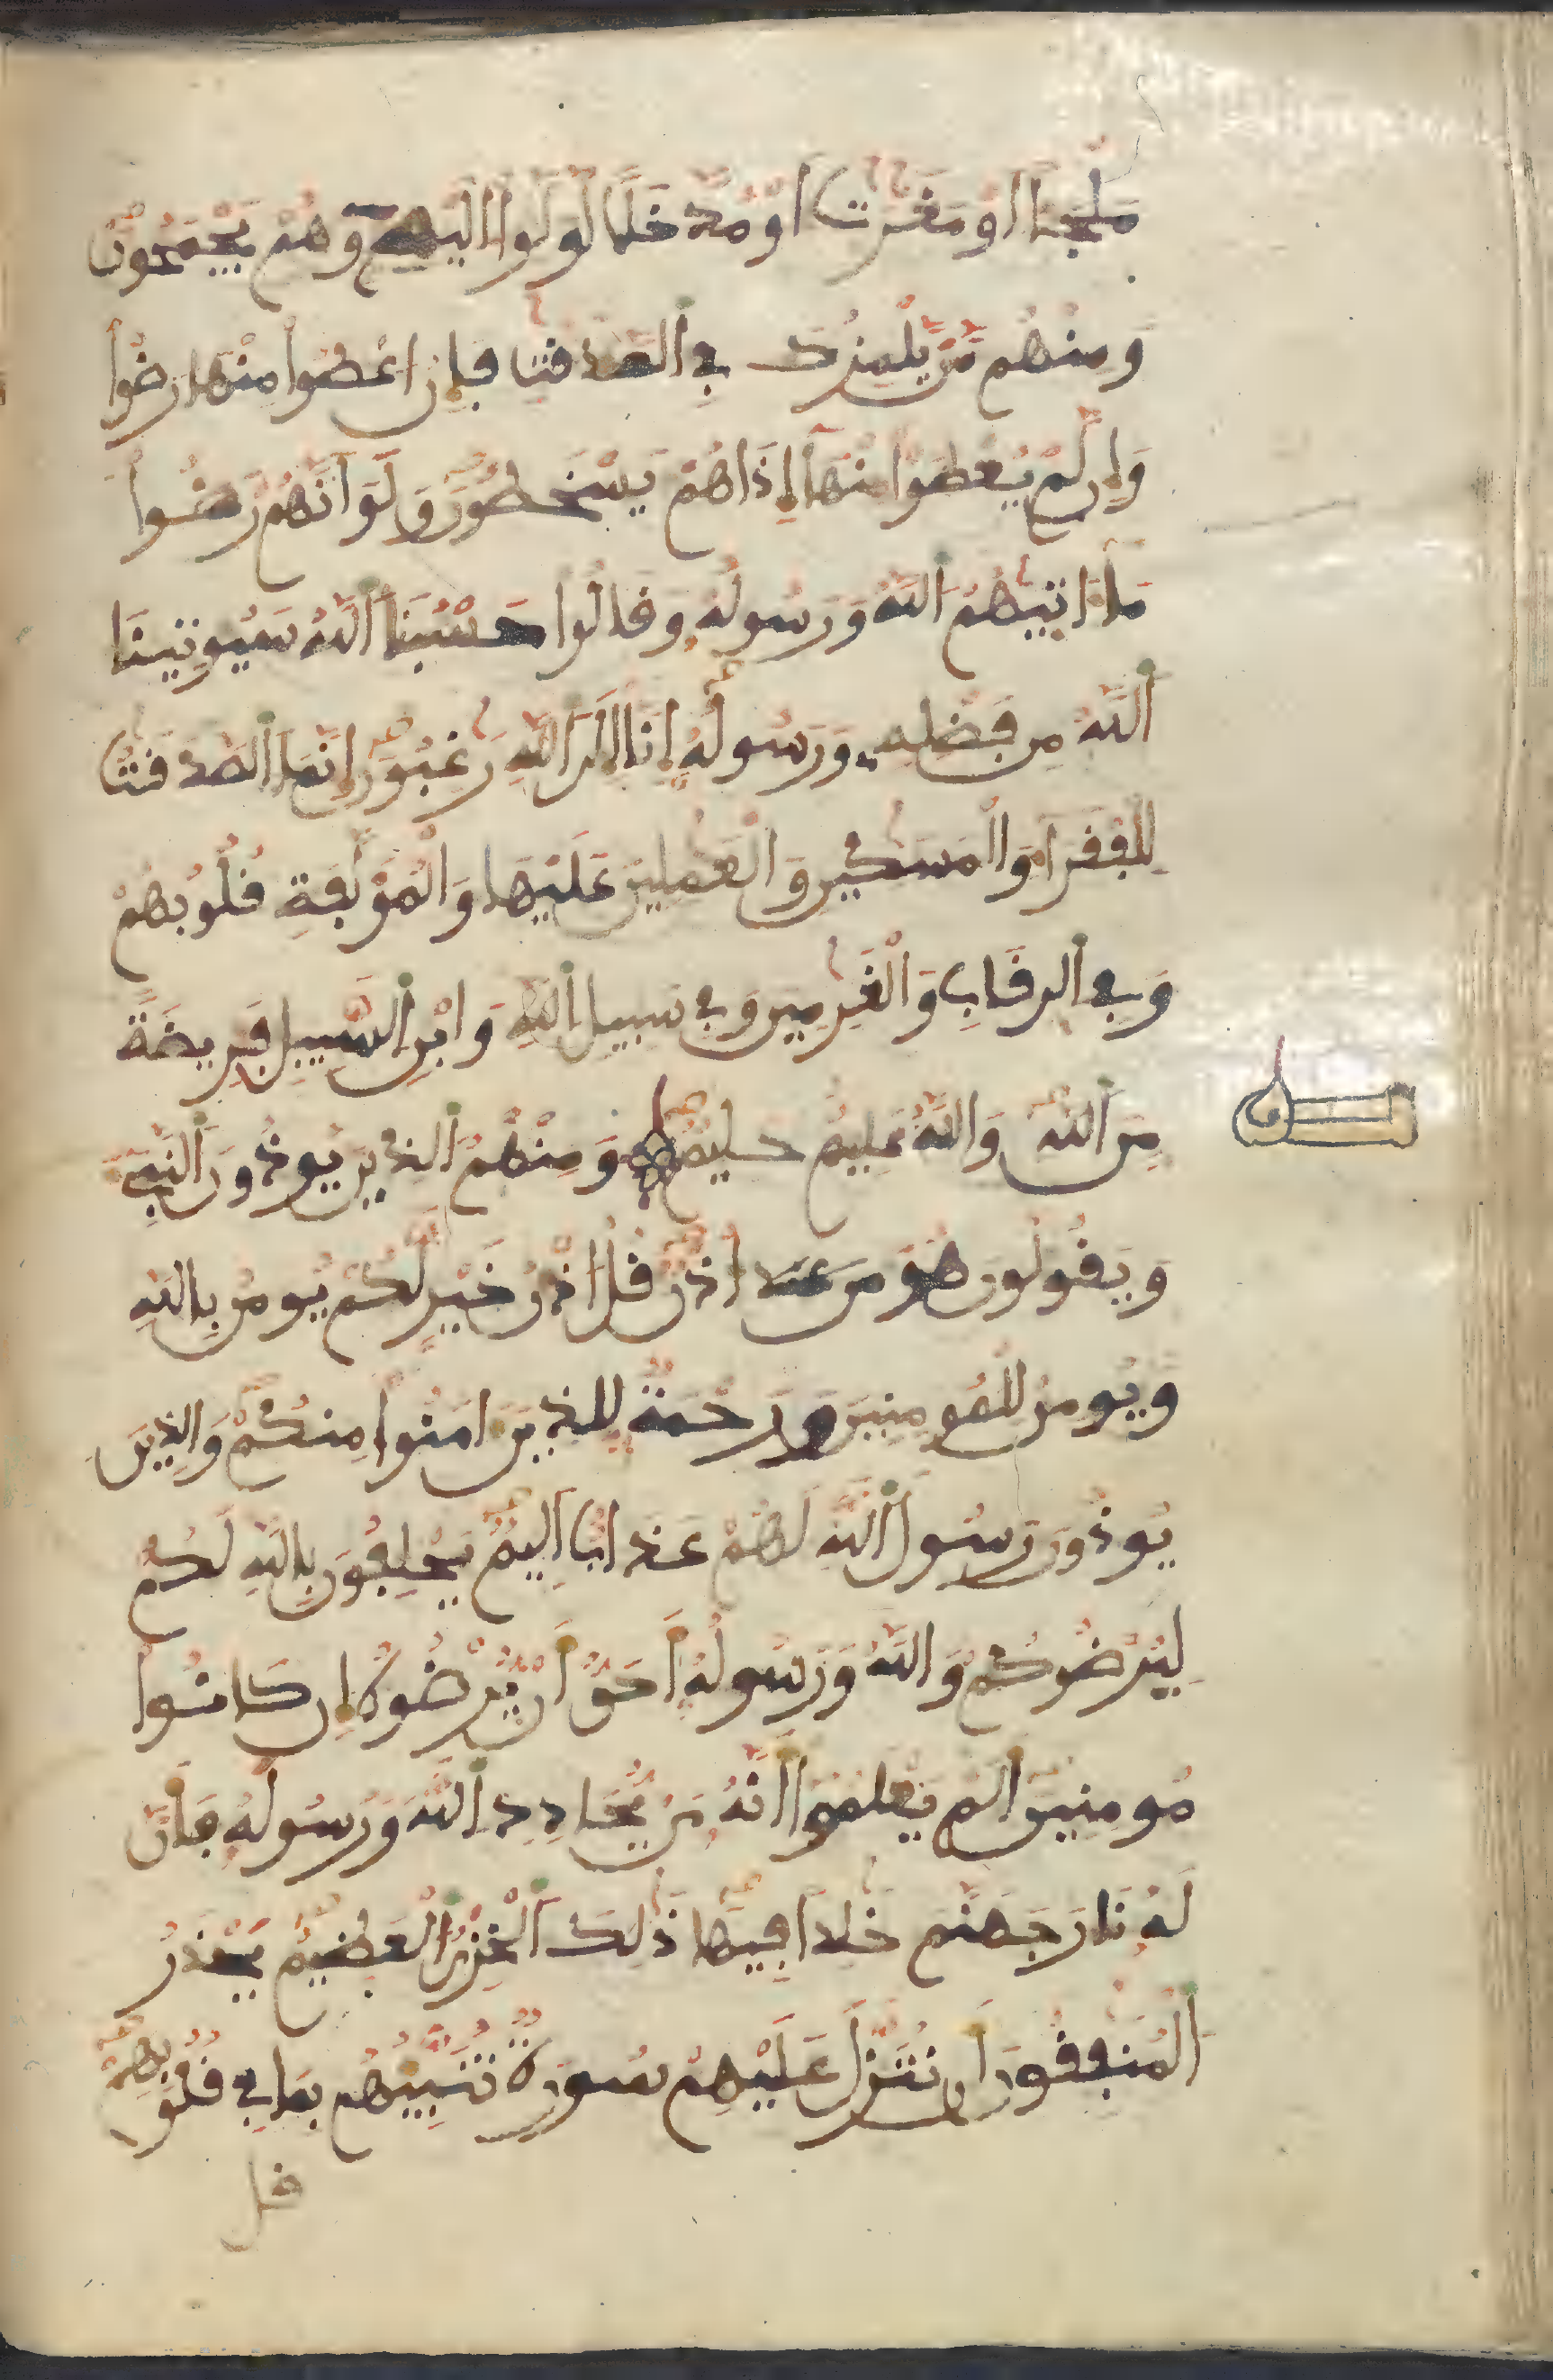 مَلْجَـًٔا اَوْ مَغَٰرَٰتٍ اَوْ مُدَّخَلًا لَّوَلَّوِا اِلَيْهِ وَهُمْ يَجْمَحُونَ
وَمِنْهُم مَّنْ يَّلْمِزُكَ فِي اَ۬لصَّدَقَٰتِ فَإِنُ اعْطُواْ مِنْهَا رَضُواْ
وَإِن لَّمْ يُعْطَوْاْ مِنْهَآ إِذَا هُمْ يَسْخَطُونَ وَلَوَ اَنَّهُمْ رَضُواْ
مَآ ءَاتَيٰهُمُ اُ۬للَّهُ وَرَسُولُهُۥ وَقَالُواْ حَسْبُنَا اَ۬للَّهُ سَيُوتِينَا
اَ۬للَّهُ مِن فَضْلِهِۦ وَرَسُولُهُۥٓ إِنَّآ إِلَى اَ۬للَّهِ رَٰغِبُونَ إِنَّمَا اَ۬لصَّدَقَٰتُ
لِلْفُقَرَآءِ وَالْمَسَٰكِينِ وَالْعَٰمِلِينَ عَلَيْهَا وَالْمُؤَلَّفَةِ قُلُوبُهُمْ
وَفِي اِ۬لرِّقَابِ وَالْغَٰرِمِينَ وَفِي سَبِيلِ اِ۬للَّهِ وَابْنِ اِ۬لسَّبِيلِ فَرِيضَةً
مِّنَ اَ۬للَّهِ وَاللَّهُ عَلِيمٌ حَكِيمٌ وَمِنْهُمُ اُ۬لذِينَ يُوذُونَ اَ۬لنَّبِيٓءَ
وَيَقُولُونَ هُوَ من عند اُذْنٌ قُلُ اذْنُ خَيْرٍ لَّكُمْ يُومِنُ بِاللَّهِ
وَيُومِنُ لِلْمُومِنِينَ وَرَحْمَةٌ لِّلذِينَ ءَامَنُواْ مِنكُمْ وَالذِينَ
يُوذُونَ رَسُولَ اَ۬للَّهِ لَهُمْ عَذَابٌ اَلِيمٌ يَحْلِفُونَ بِاللَّهِ لَكُمْ
لِيُرْضُوكُمْ وَاللَّهُ وَرَسُولُهُۥٓ أَحَقُّ أَنْ يُّرْضُوهُ إِن كَانُواْ
مُومِنِينَ أَلَمْ يَعْلَمُوٓاْ أَنَّهُۥ مَنْ يُّحَادِدِ اِ۬للَّهَ وَرَسُولَهُۥ فَأَنَّ
لَهُۥ نَارَ جَهَنَّمَ خَٰلِداً فِيهَا ذَٰلِكَ اَ۬لْخِزْيُ اُ۬لْعَظِيمُ يَحْذَرُ
اُ۬لْمُنَٰفِقُونَ أَن تُنَزَّلَ عَلَيْهِمْ سُورَةٌ تُنَبِّئُهُم بِمَا فِي قُلُوبِهِمْ
قل